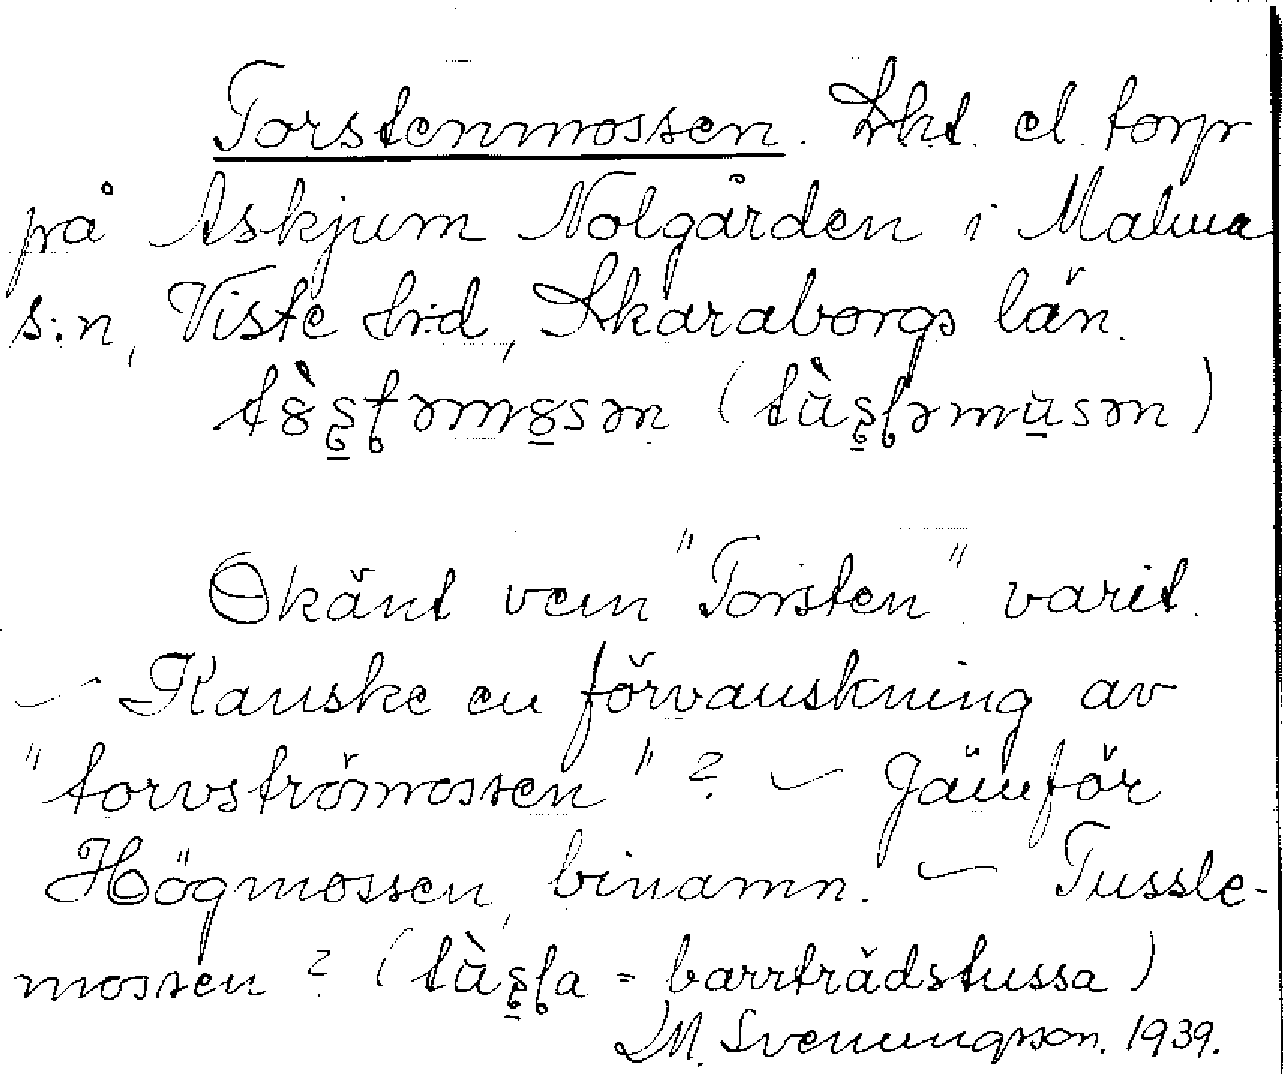 Torstenmossen. Skt. el. torp
på Askjum Nolgården i Malma
s:n, Viste h:d, Skaraborgs län.

Okänt vem "Torsten" varit.
- Kanske en förvanskning av
"torvströmossen"? - Jämför
Högmossen, binamn. - Tussle-
mossen? ( = barrträdstussa)
M. Svenungsson. 1939.